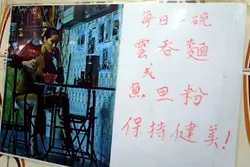 每日碗
雲吞麵
或
魚旦粉
保持健美!